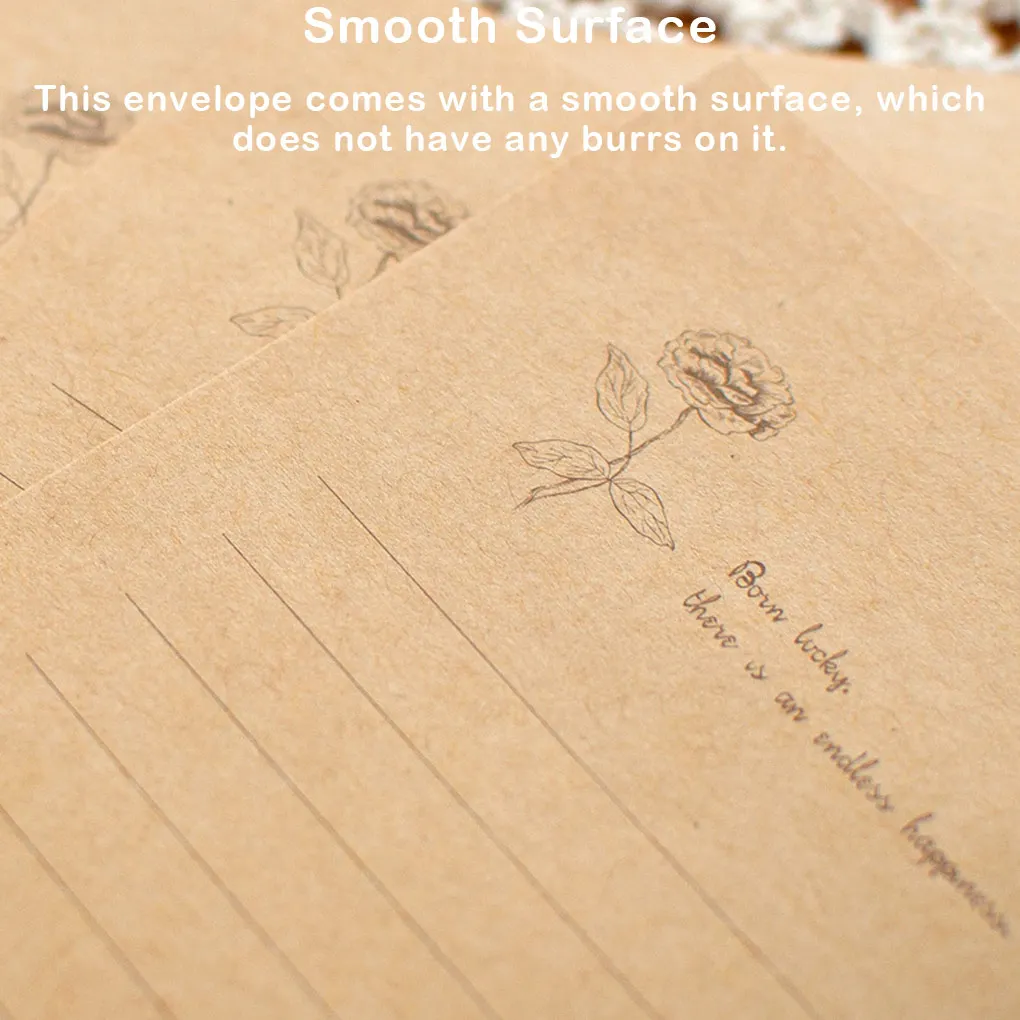 Smooth Surface
This envelope comes with a smooth surface, which
does not have any burrs on it.
Born lucky.
there is an endless happiness